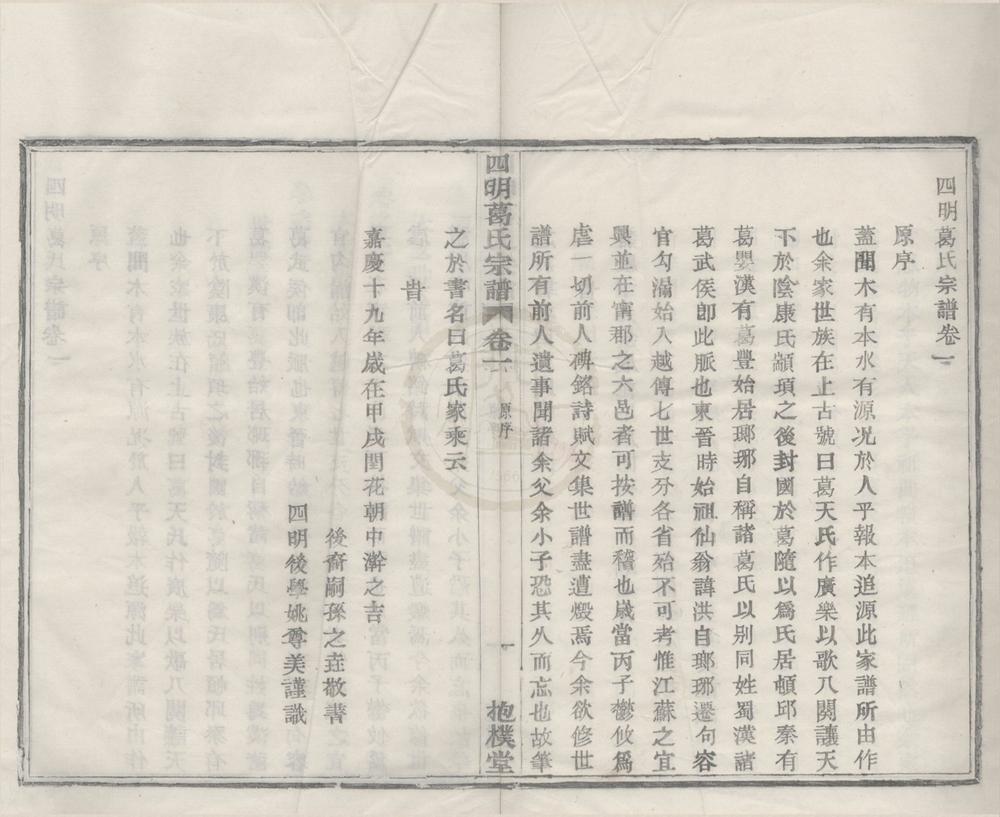 四明葛氏宗譜卷一
原序
蓋聞木有本水有源况於人乎報本追源此家譜所由作
也余家世族在上古號曰葛天氏作廣樂以歌八闋讓天
下於陰康氏顓頊之後封國於葛隨以爲氏居頓邱秦有
葛嬰漢有葛豐始居瑯琊自稱諸葛氏以别同姓蜀漢諸
葛武侯卽此脈也東晉時始祖仙翁諱洪自瑯琊遷句容
官勾漏始入越傳七世支分各省殆不可考惟江蘇之宜
興並在甯郡之六邑者可按譜而稽也歲當丙子鬱攸爲
虐一切前人碑銘詩賦文集世譜盡遭燬焉今余欲修世
譜所有前人遺事聞諸余父余小子恐其久而忘也故筆
四明葛氏宗譜
卷一
原序
一
抱樸堂
之於書名曰葛氏家乘云
旹
嘉慶十九年歲在甲戌閏花朝中澣之吉
後裔嗣孫之垚敬書
四明後學姚尊美謹識